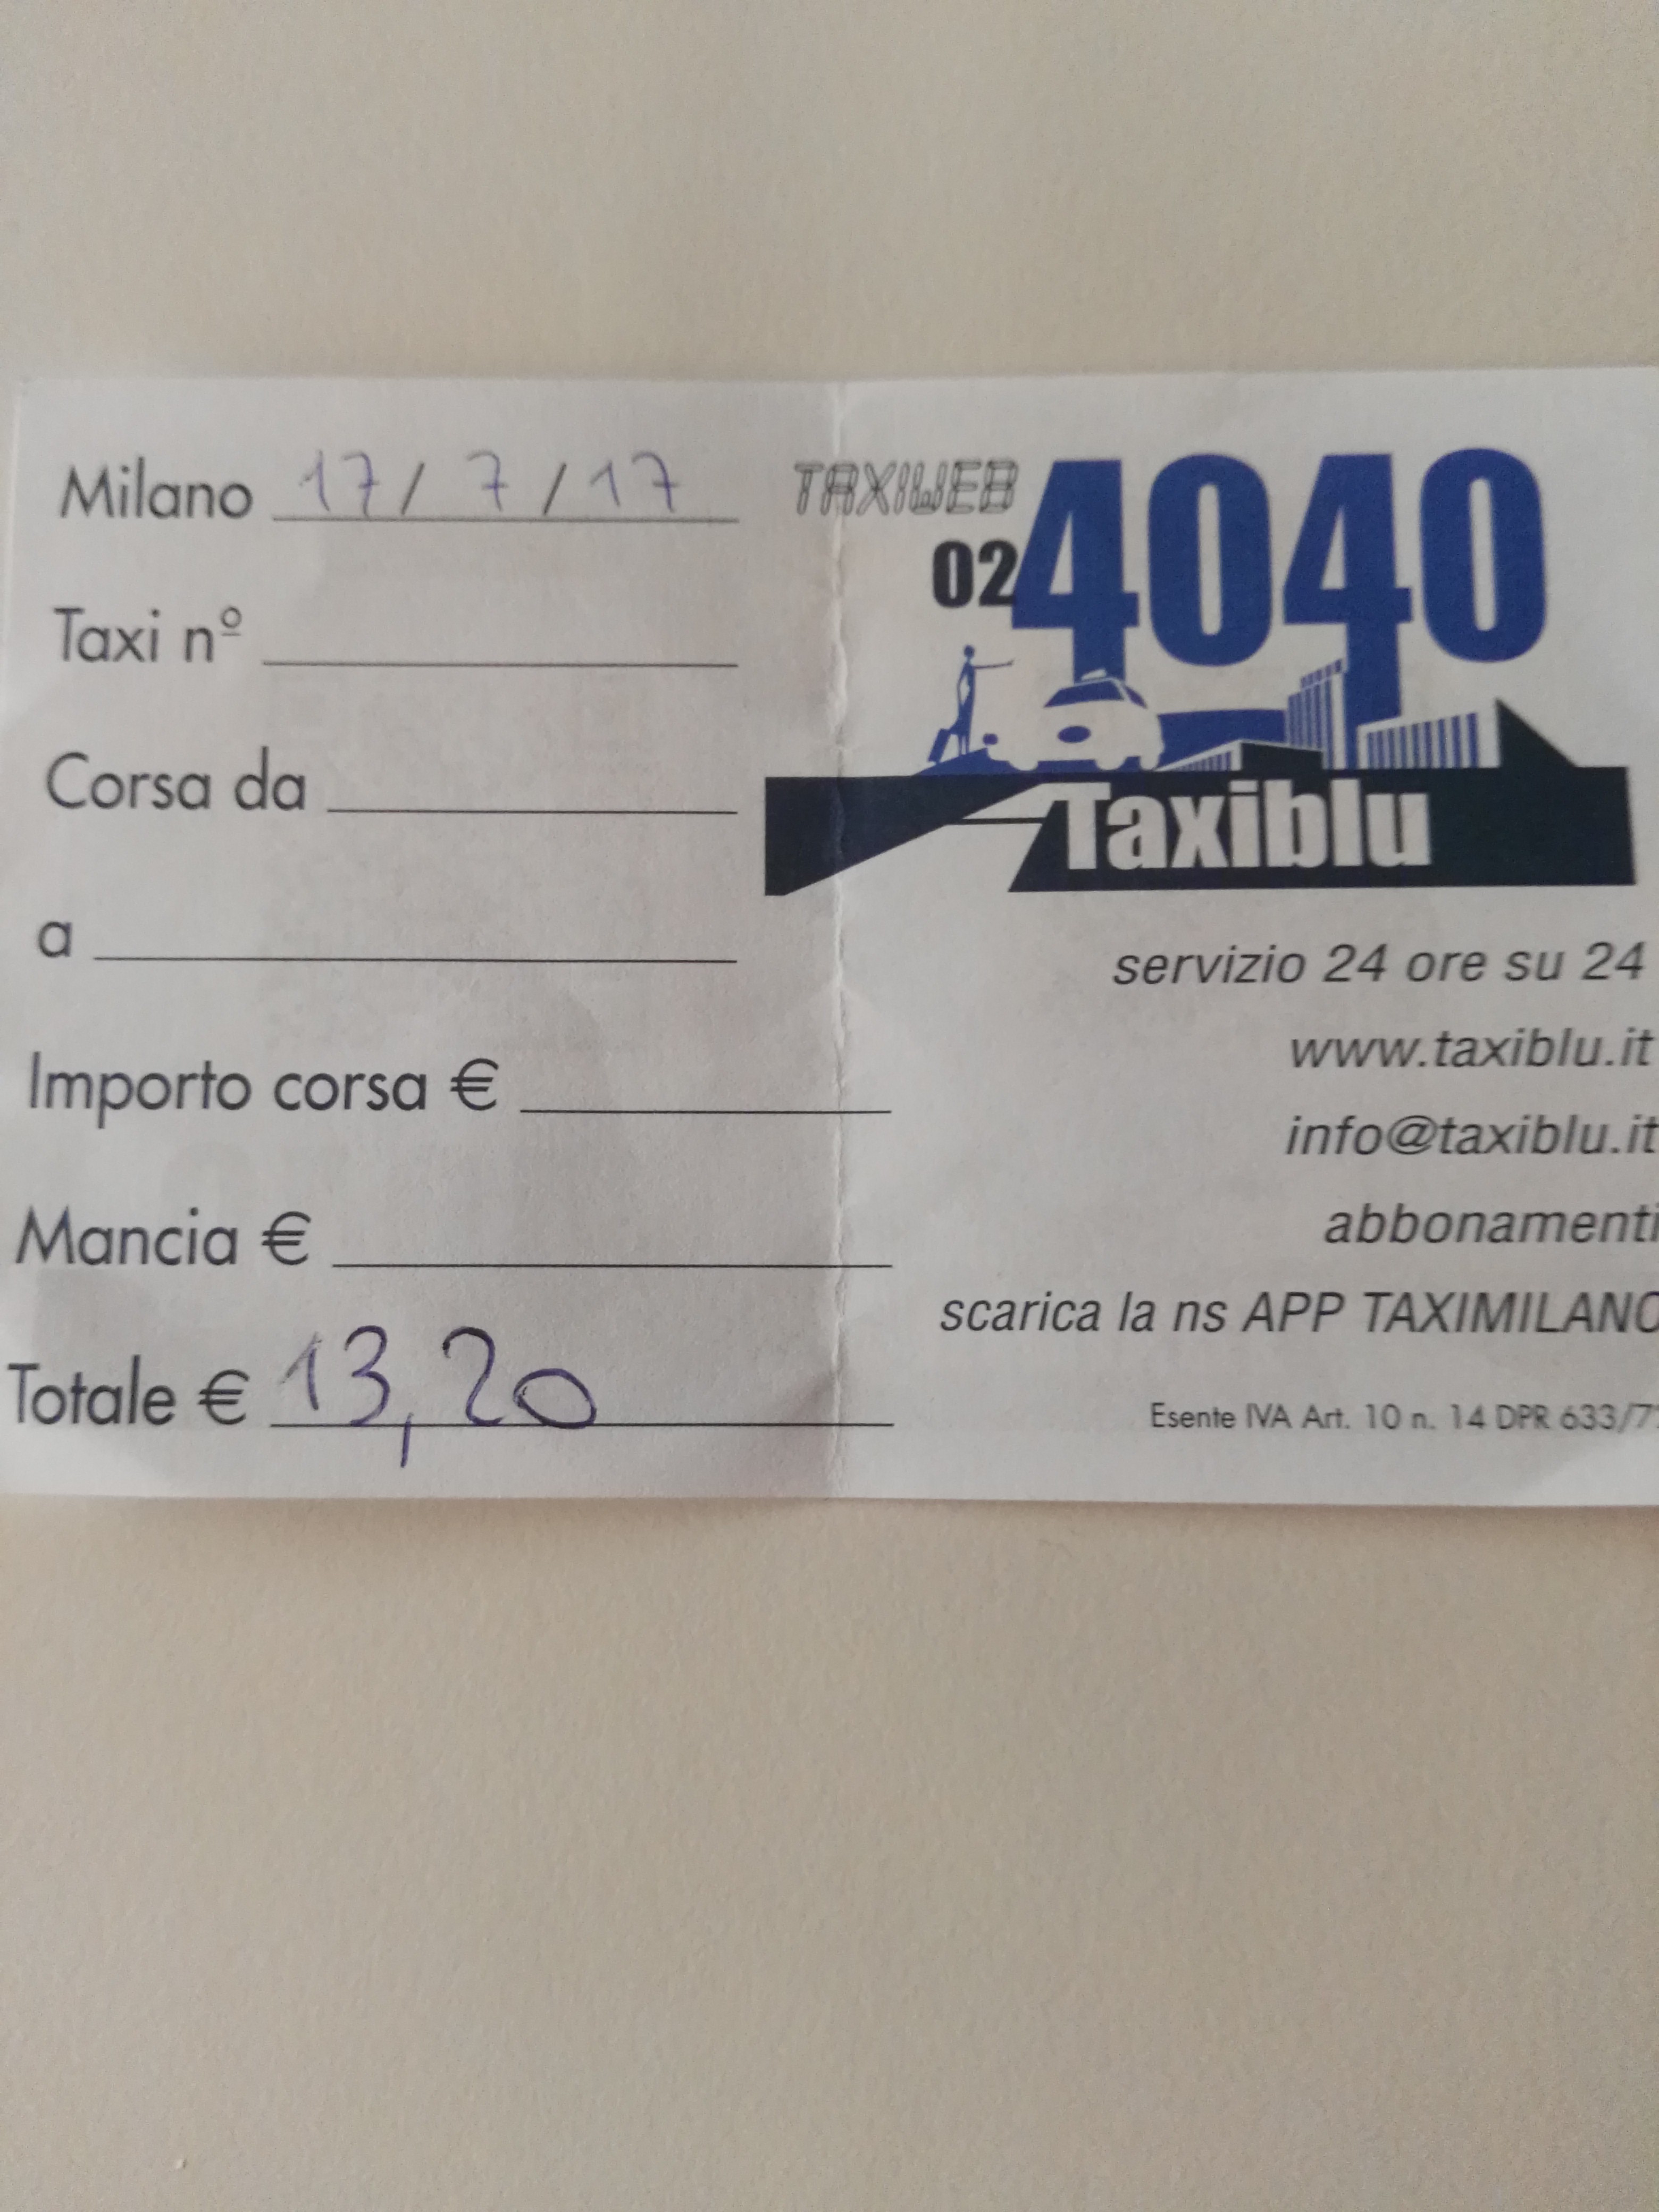 Milano 17/7/17
Taxi nº
Corsa da
a
Importo corsa €
Mancia €
Totale € 13,20
TAXIWEB
02 4040
Taxiblu
servizio 24 ore su 24
www.taxiblu.it
info@taxiblu.it
abbonamenti
scarica la ns APP TAXIMILANO
Esente IVA Art. 10 n. 14 DPR 633/7